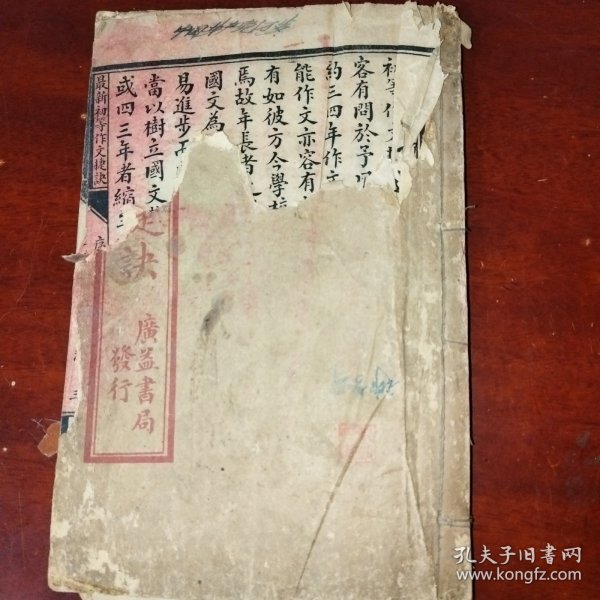 初等作文
容有問於予
約三四年作文
能作文亦容有
有如彼方今學校
焉故年長者
國文為
易進步
當以樹立國文
或四三年者縮
最新初等作文捷訣
序
捷訣
廣益書局
發行
孔夫子旧书网
www.kongfz.com